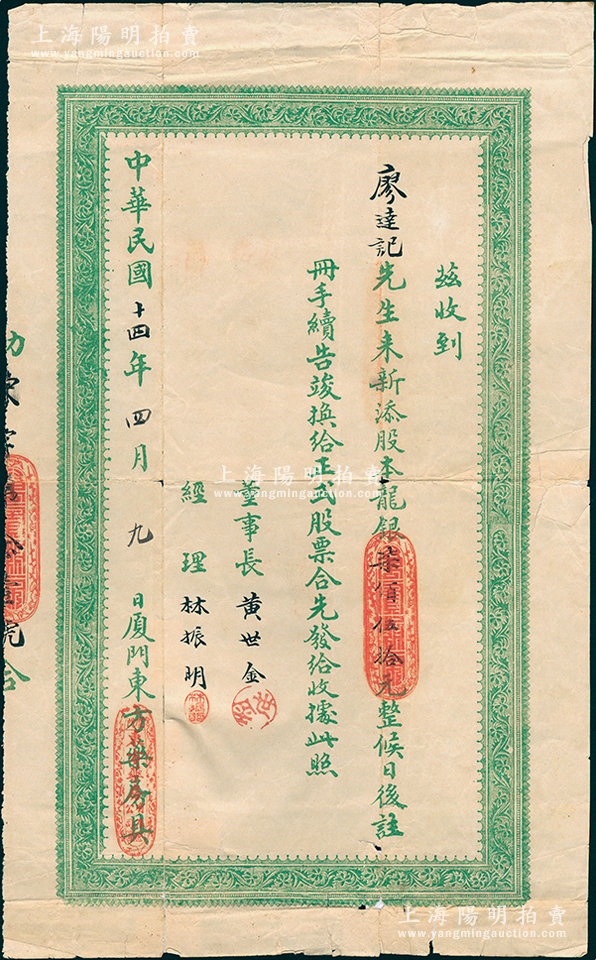 上海陽明拍賣
www.yangmingauction.com
茲收到
廖達記先生来新添股本龍銀柒佰伍拾元整候日後註
冊手續告竣換給正式股票合先發給收據此照
董事長黃世金
經理林振明
中華民國十四年四月九日廈門東方藥房具
上海陽明拍賣
www.yangmingauction.com
上海陽明拍賣
www.yangmingauction.com